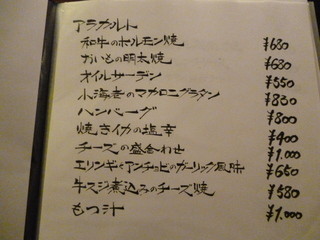 アラカルト
和牛のホルモン焼 ¥680
おいもの明太焼 ¥630
オイルサーデン ¥550
小海老のマカロニグラタン ¥800
ハンバーグ ¥800
焼きイカの塩辛 ¥400
チーズの盛合わせ ¥1.000
エリンギとアンチョビのガーリック風味 ¥650
牛スジ煮込みのチーズ焼 ¥580
もつ汁 ¥1.000